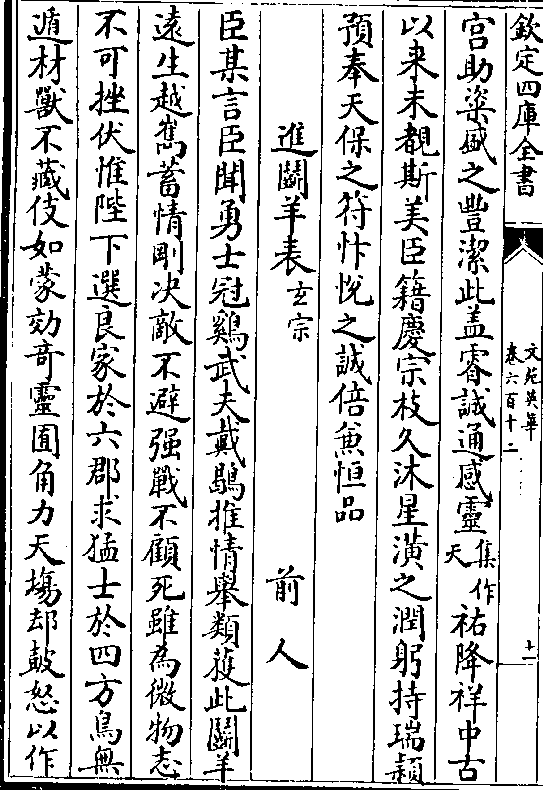 欽定四庫全書
文苑英華
卷六百十二
十一
宫助粢盛之豐潔此盖睿誠通感靈集作天祐降祥中古
以來未覩斯美臣籍慶宗枝久沐星潢之潤躬持瑞穎
預奉天保之符忭悅之誠倍兼恒品
進鬬羊表玄宗 前人
臣某言臣聞勇士冠鷄武夫戴鶡推情舉類獲此鬬羊
遠生越嶲蓄情剛決敵不避强戰不顧死雖為微物志
不可挫伏惟陛下選良家於六郡求猛士於四方鳥無
遁材獸不藏伎如蒙効奇靈囿角力天塲却鼓怒以作